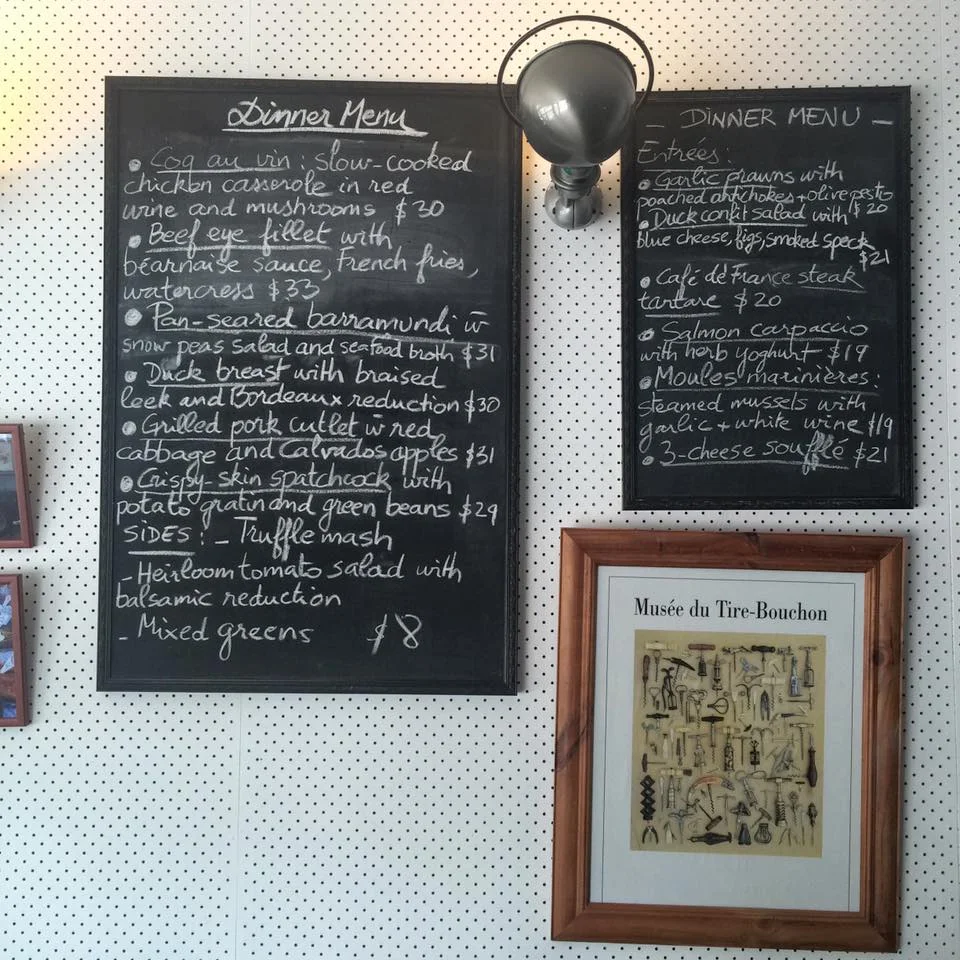 Dinner Menu
• Coq au vin : slow-cooked
chicken casserole in red
wine and mushrooms $30
• Beef eye fillet with
béarnaise sauce, French fries,
watercress $33
• Pan-seared barramundi w̄
snow peas salad and seafood broth $31
• Duck breast with braised
leek and Bordeaux reduction $30
• Grilled pork cutlet w̄ red
cabbage and Calvados apples $31
• Crispy-skin spatchcock with
potato gratin and green beans $29
SIDES : - Truffle mash
- Heirloom tomato salad with
balsamic reduction
- Mixed greens $8
- DINNER MENU -
Entrées :
• Garlic prawns with
poached artichokes + olive pesto
• Duck confit salad with $20
blue cheese, figs, smoked speck
$21
• Café de France steak
tartare $20
• Salmon carpaccio
with herb yoghurt $19
• Moules marinières :
steamed mussels with
garlic + white wine $19
• 3-cheese soufflé $21
Musée du Tire-Bouchon